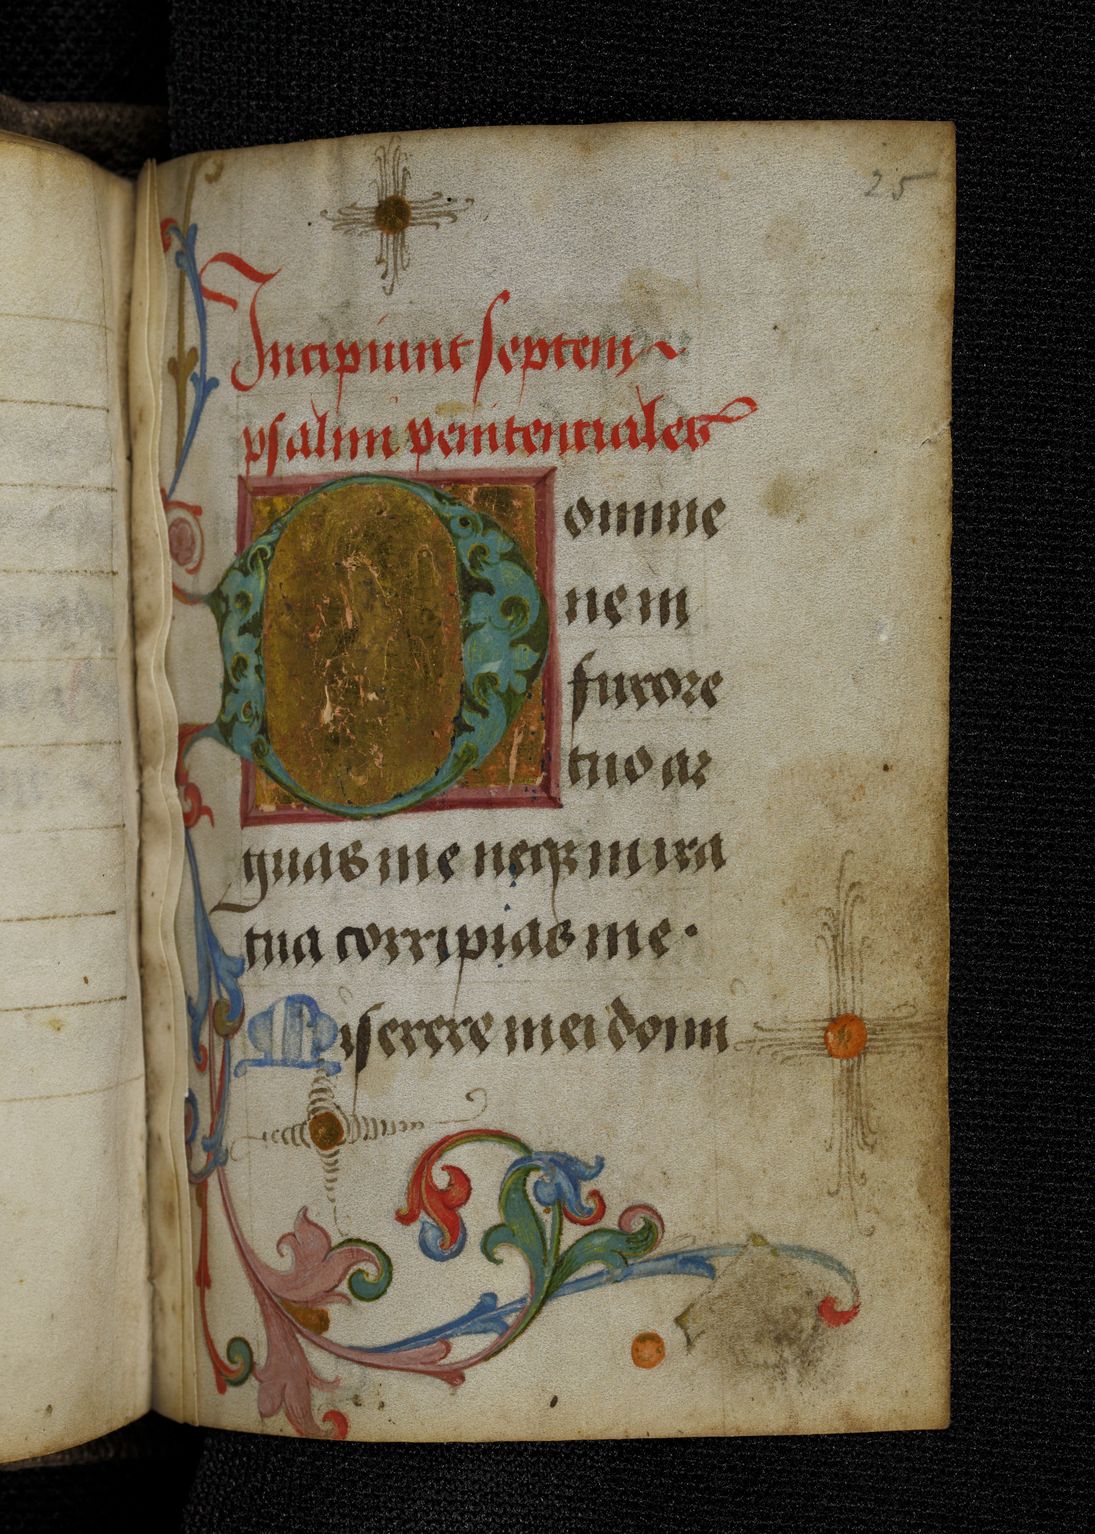 25
Incipiunt septem
psalmi penitenciales
Domine
ne in
furore
tuo ar
guas me neqꝫ in ira
tua corripias me ·
Miserere mei domi